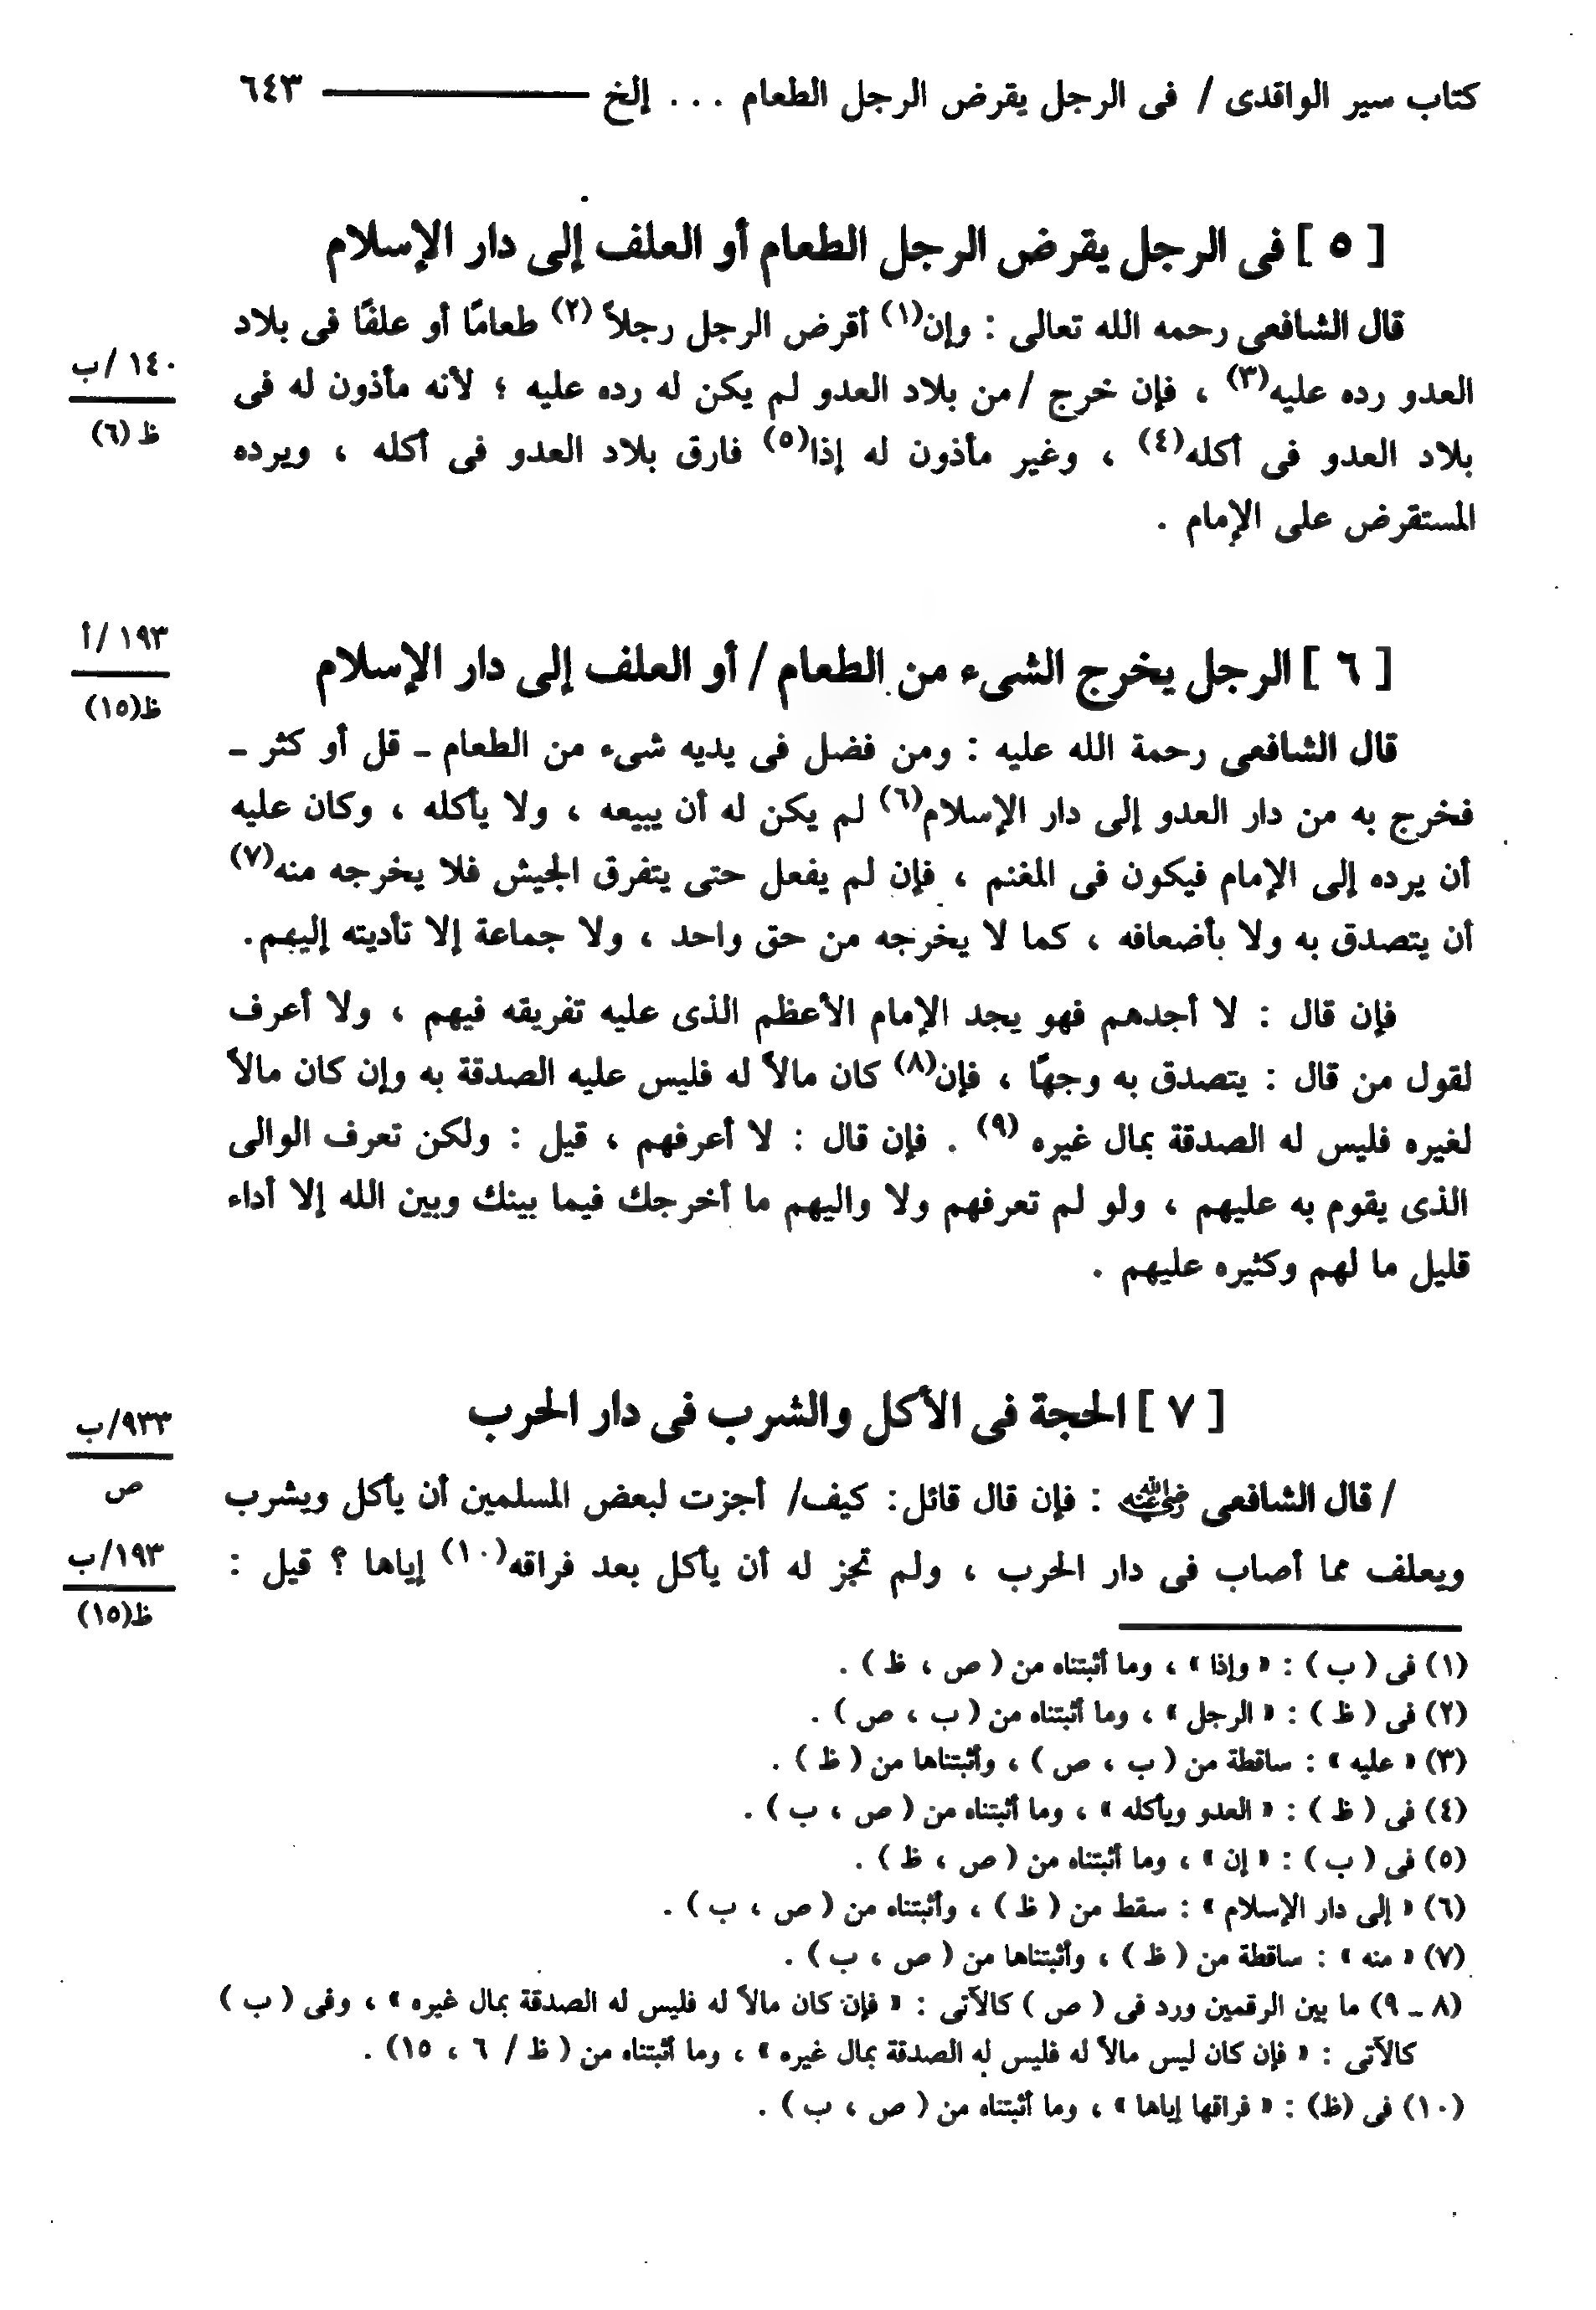 كتاب سير الواقدى / فى الرجل يقرض الرجل الطعام ... إلخ ــــــــ ٦٤٣
[ ٥ ] فى الرجل يقرض الرجل الطعام أو العلف إلى دار الإسلام
قال الشافعى رحمه الله تعالى : وإن(١) أقرض الرجل رجلاً (٢) طعامًا أو علفًا فى بلاد
العدو رده عليه(٣) ، فإن خرج / من بلاد العدو لم يكن له رده عليه ؛ لأنه مأذون له فى
١٤٠ /ب
ظ (٦)
بلاد العدو فى أكله(٤) ، وغير مأذون له إذا(٥) فارق بلاد العدو فى أكله ، ويرده
المستقرض على الإمام .
[ ٦ ] الرجل يخرج الشىء من الطعام / أو العلف إلى دار الإسلام
١٩٣ /أ
ظ(١٥)
قال الشافعى رحمة الله عليه : ومن فضل فى يديه شىء من الطعام ـ قل أو كثر ـ
فخرج به من دار العدو إلى دار الإسلام(٦) لم يكن له أن يبيعه ، ولا يأكله ، وكان عليه
أن يرده إلى الإمام فيكون فى المغنم ، فإن لم يفعل حتى يتفرق الجيش فلا يخرجه منه(٧)
أن يتصدق به ولا بأضعافه ، كما لا يخرجه من حق واحد ، ولا جماعة إلا تأديته إليهم.
فإن قال : لا أجدهم فهو يجد الإمام الأعظم الذى عليه تفريقه فيهم ، ولا أعرف
لقول من قال : يتصدق به وجهًا ، فإن(٨) كان مالاً له فليس عليه الصدقة به وإن كان مالاً
لغيره فليس له الصدقة بمال غيره (٩) . فإن قال : لا أعرفهم ، قيل : ولكن تعرف الوالى
الذى يقوم به عليهم ، ولو لم تعرفهم ولا واليهم ما أخرجك فيما بينك وبين الله إلا أداء
قليل ما لهم وكثيره عليهم .
[ ٧ ] الحجة فى الأكل والشرب فى دار الحرب
٩٣٣/ب
ص
/ قال الشافعى رضي الله عنه : فإن قال قائل: كيف/ أجزت لبعض المسلمين أن يأكل ويشرب
١٩٣/ب
ظ(١٥)
ويعلف مما أصاب فى دار الحرب ، ولم تجز له أن يأكل بعد فراقه(١٠) إياها ؟ قيل :
(١) فى ( ب ) : « وإذا » ، وما أثبتناه من ( ص ، ظ ) .
(٢) فى ( ظ ) : « الرجل » ، وما أثبتناه من ( ب ، ص ) .
(٣) « عليه » : ساقطة من ( ب ، ص ) ، وأثبتناها من ( ظ ) .
(٤) فى ( ظ ) : « العدو ويأكله » ، وما أثبتناه من ( ص ، ب ) .
(٥) فى ( ب ) : « إن » ، وما أثبتناه من ( ص ، ظ ) .
(٦) « إلى دار الإسلام » : سقط من ( ظ ) ، وأثبتناه من ( ص ، ب ) .
(٧) « منه » : ساقطة من ( ظ ) ، وأثبتناها من ( ص ، ب ) .
(٨ ـ ٩) ما بين الرقمين ورد فى ( ص ) كالآتى : « فإن كان مالاً له فليس له الصدقة بمال غيره » ، وفى ( ب )
كالآتى : « فإن كان ليس مالاً له فليس له الصدقة بمال غيره » ، وما أثبتناه من ( ظ / ٦ ، ١٥) .
(١٠) فى (ظ) : « فراقها إياها » ، وما أثبتناه من ( ص ، ب ) .